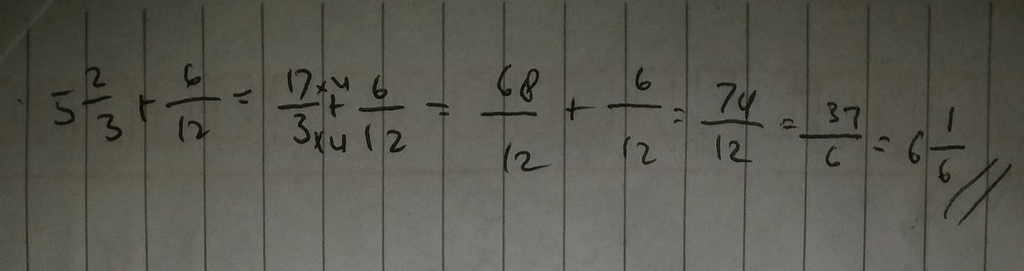 5 2/3 + 6/12 = 17×4/3×4 + 6/12 = 68/12 + 6/12 = 74/12 = 37/6 = 6 1/6 //